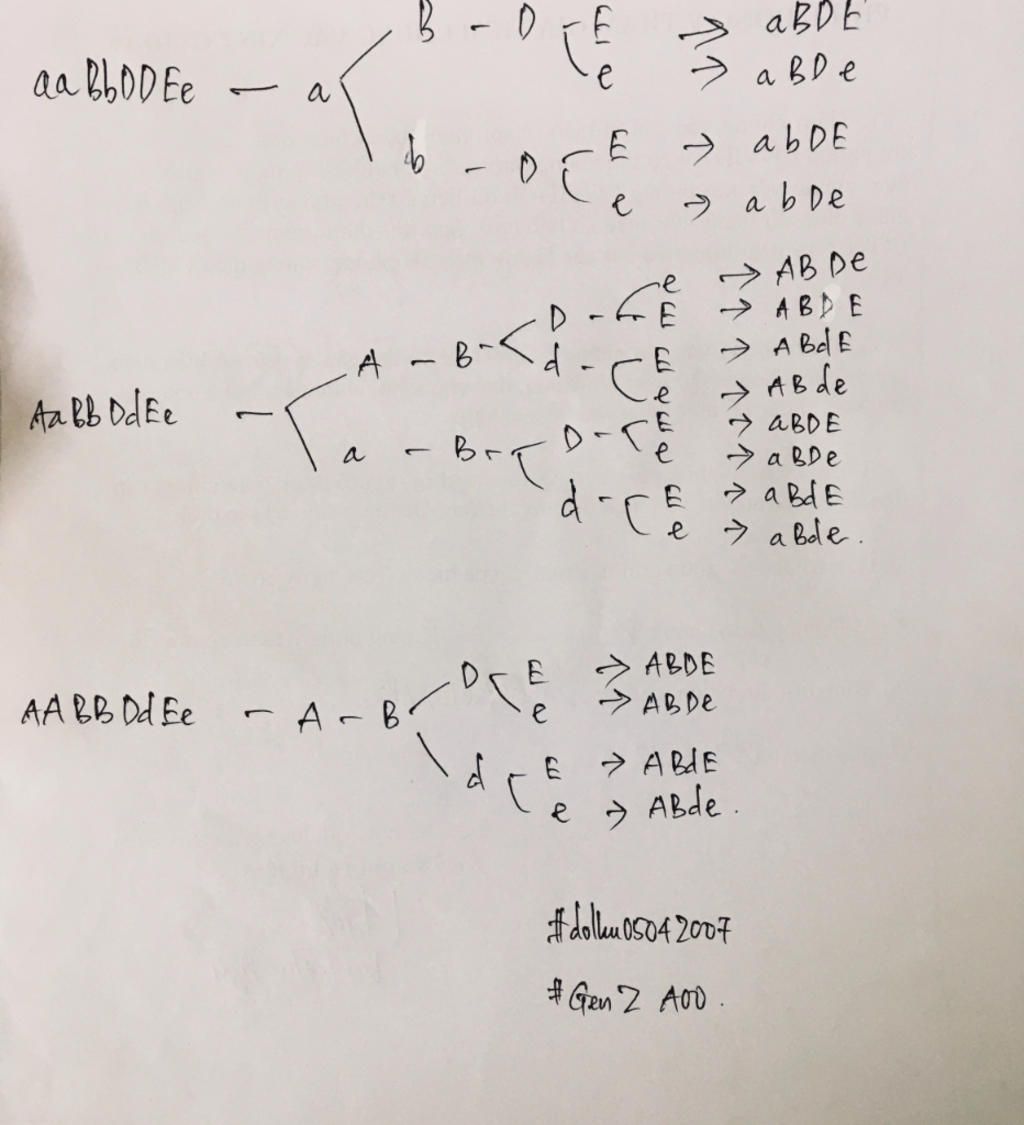 B - D E → aBDE
aaBbDDEe - a e → aBDe
b - D E → abDE
e → abDe
e → ABDe
D - E → ABDE
A - B - d - E → ABdE
e → ABde
AaBBDdEe - D - E → aBDE
a - B - e → aBDe
d - E → aBdE
e → aBde.
D E → ABDE
AABBDdEe - A - B e → ABDe
d E → ABdE
e → ABde.
#Gen Z A00.